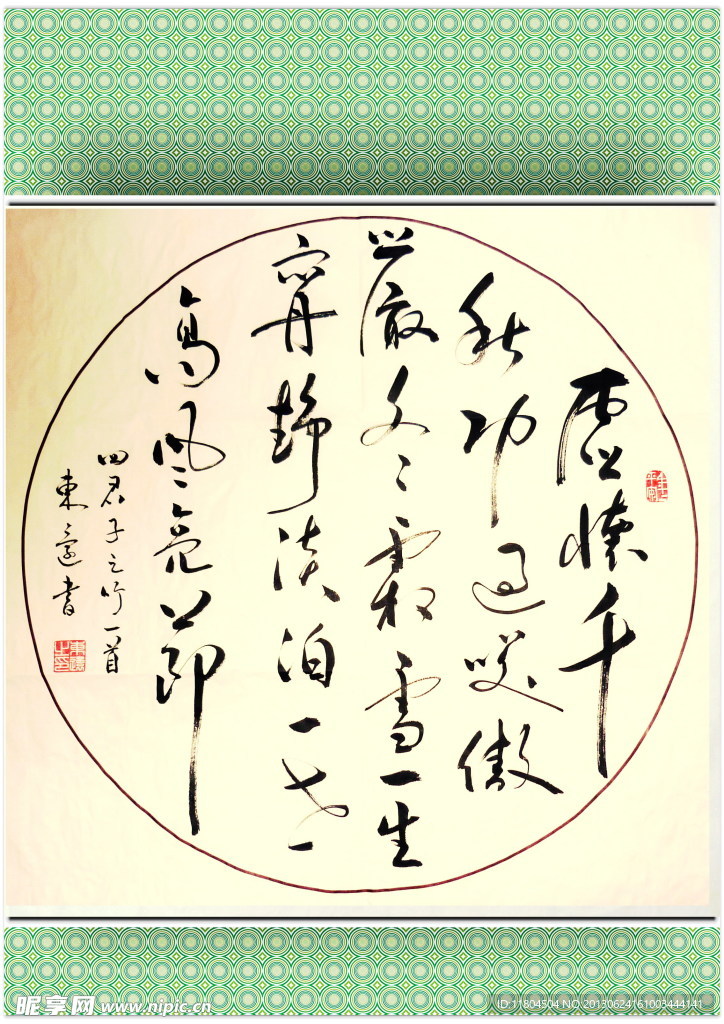 虚懷千
秋功过咲傲
嚴冬霜雪一生
寧静淡泊一世
高风亮節
四君子之竹一首
東遠書
東遠之印
昵享网 www.nipic.cn
ID:11804504 NO:20130624161003444141